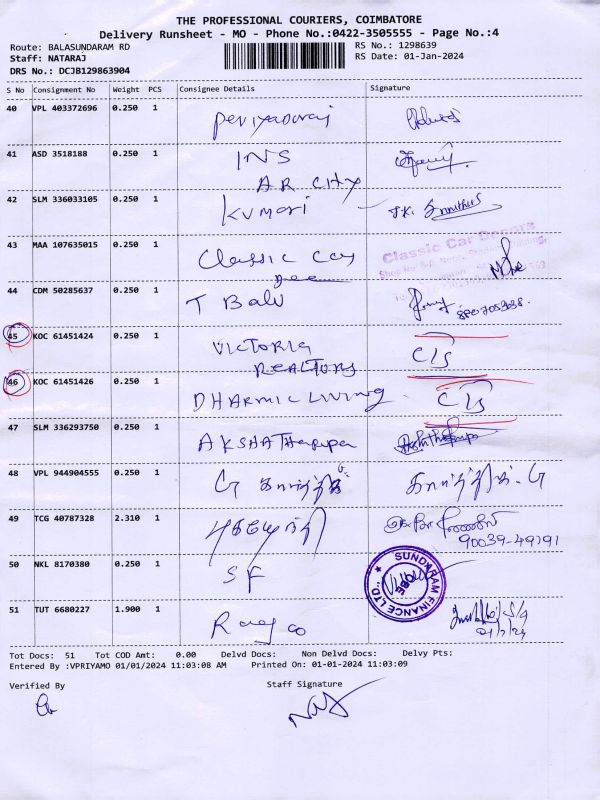 THE PROFESSIONAL COURIERS, COIMBATORE
Delivery Runsheet - MO - Phone No.:0422-3505555 - Page No.:4
Route: BALASUNDARAM RD
RS No.: 1298639
Staff: NATARAJ
RS Date: 01-Jan-2024
DRS No.: DCJB129863904
S No Consignment No Weight PCS Consignee Details Signature
40 VPL 403372696 0.250 1 Periyadurai
41 ASD 3518188 0.250 1 INS
AR CITY
42 SLM 336033105 0.250 1 Kumari
43 MAA 107635015 0.250 1 Classic Car
Classic Car Decors
44 CDM 50285637 0.250 1 T Balu
45 KOC 61451424 0.250 1 VICTORIA CLS
REALTORS
46 KOC 61451426 0.250 1 DHARMIC LIVING CLS
47 SLM 336293750 0.250 1 AKSHATHA
48 VPL 944904555 0.250 1 G கார்த்திக் கார்த்திக். G
49 TCG 40787328 2.310 1
90039-49191
50 NKL 8170380 0.250 1 SF
SUNDARAM FINANCE LTD.,
CBE
51 TUT 6680227 1.900 1
Tot Docs: 51 Tot COD Amt: 0.00 Delvd Docs: Non Delvd Docs: Delvy Pts:
Entered By :VPRIYAMO 01/01/2024 11:03:08 AM Printed On: 01-01-2024 11:03:09
Verified By Staff Signature